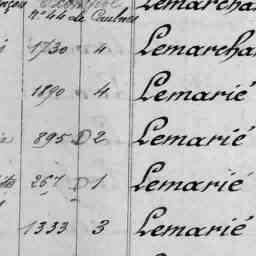 Lemarcha
N° 44 de
1730 4 Lemarcha
1890 4 Lemarié
895 D 2 Lemarié
267 D 1 Lemarié
1333 3 Lemarié